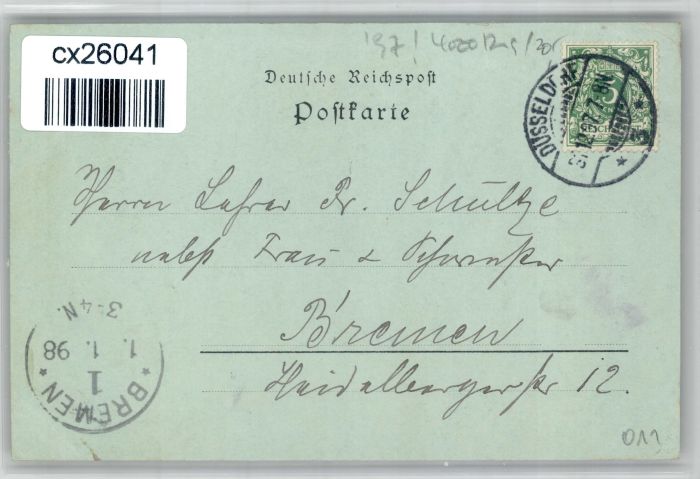 cx26041
Deutsche Reichspost
Postkarte
DÜSSELDORF
12 97 7-8N
REICHSPOST
Herrn Lehrer Fr. Schultze
nebst Frau & Schwester
Bremen
Heidelbergerstr 12.
BREMEN
1
1. 1. 98
3-4 N.
011